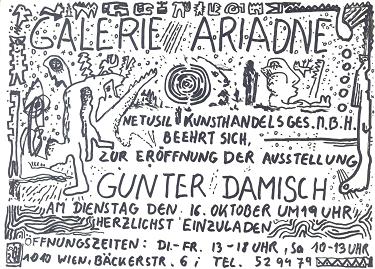 GALERIE ARIADNE
NETUSIL KUNSTHANDELSGES.M.B.H.
BEEHRT SICH,
ZUR ERÖFFNUNG DER AUSSTELLUNG
GUNTER DAMISCH
AM DIENSTAG DEN 16. OKTOBER UM 19 UHR
HERZLICHST EINZULADEN
ÖFFNUNGSZEITEN: DI.-FR. 13-18 UHR, Sa 10-13 UHR
1010 WIEN, BÄCKERSTR. 6 ; TEL. 52 94 79